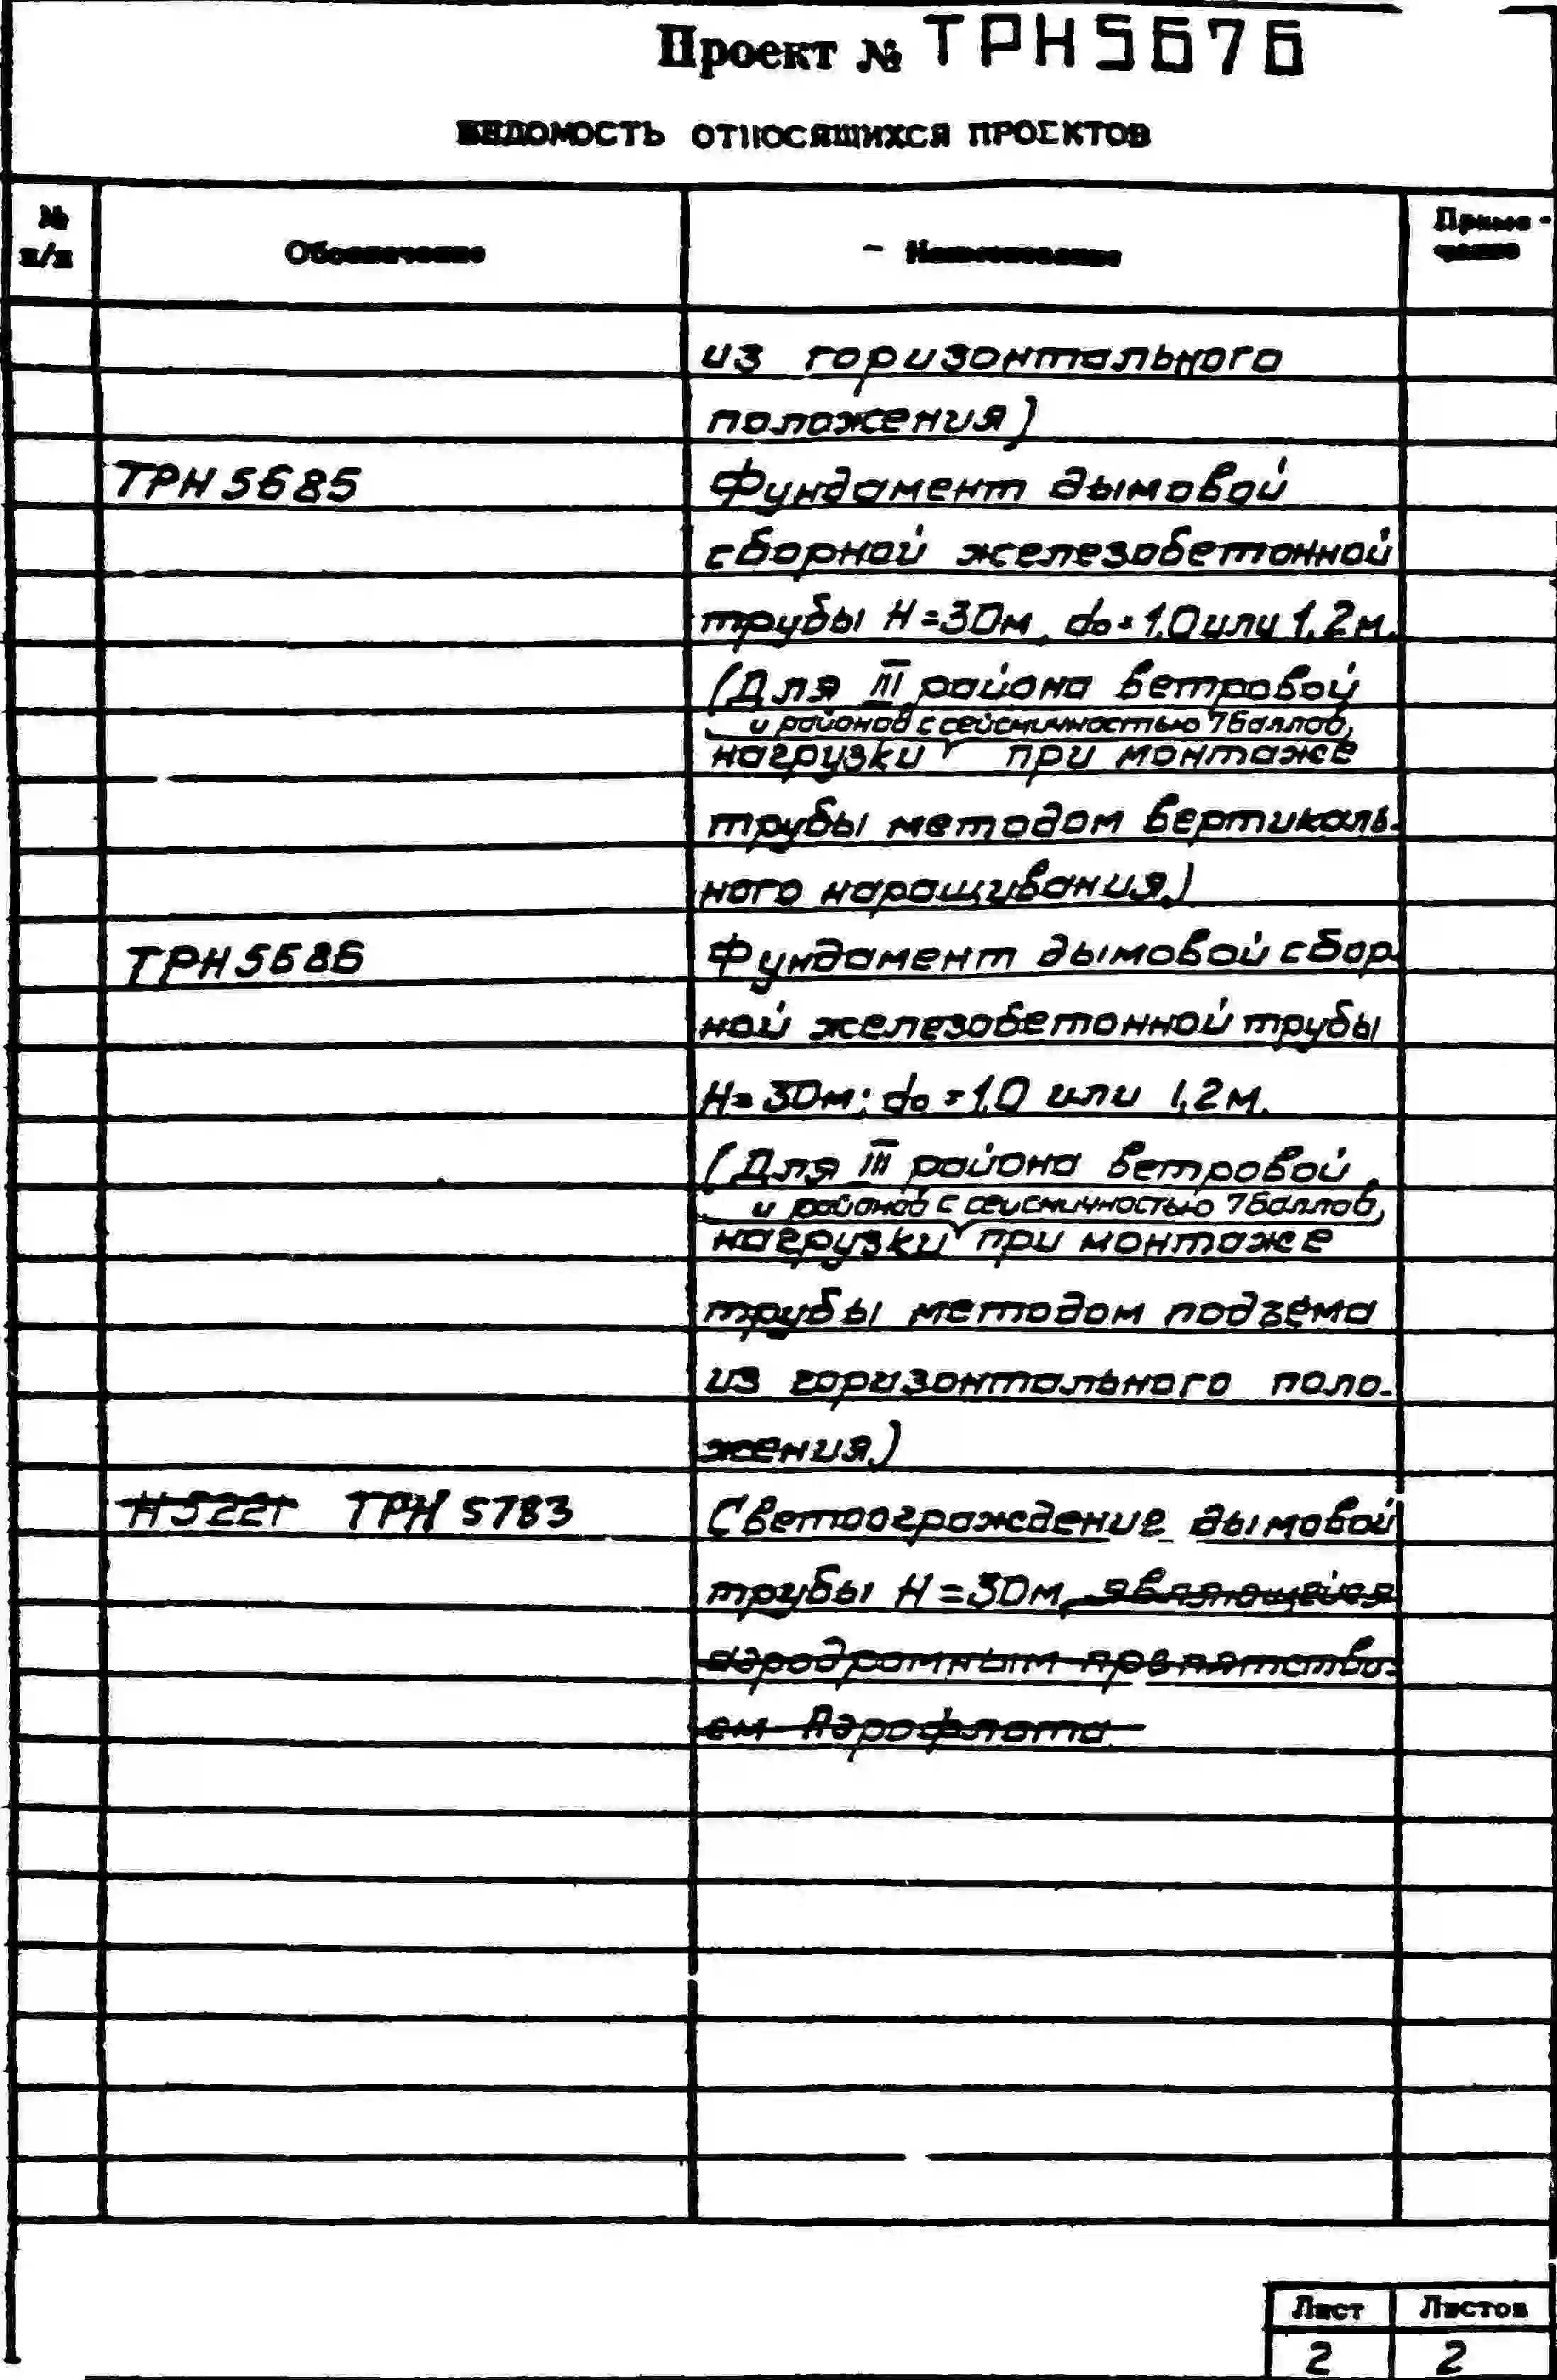 Проект № ТРН5676
ВЕДОМОСТЬ ОТНОСЯЩИХСЯ ПРОЕКТОВ
№ п/п
Обозначение
Наименование
Приме-
чание
из горизонтального
положения)
ТРН5685 Фундамент дымовой
сборной железобетонной
трубы Н=30м, do=1,0 или 1,2м.
(Для III района ветровой
и районов с сейсмичностью 7баллов,
нагрузки при монтаже
трубы методом вертикаль-
ного наращивания.)
ТРН5686 Фундамент дымовой сбор-
ной железобетонной трубы
Н=30м; do=1,0 или 1,2м.
(Для III района ветровой
и районов с сейсмичностью 7баллов,
нагрузки при монтаже
трубы методом подъёма
из горизонтального поло-
жения.)
Н5221 ТРН 5783 Светоограждение дымовой
трубы Н=30м, являющейся
аэродромным препятстви-
ем Аэрофлота
Лист Листов
2 2